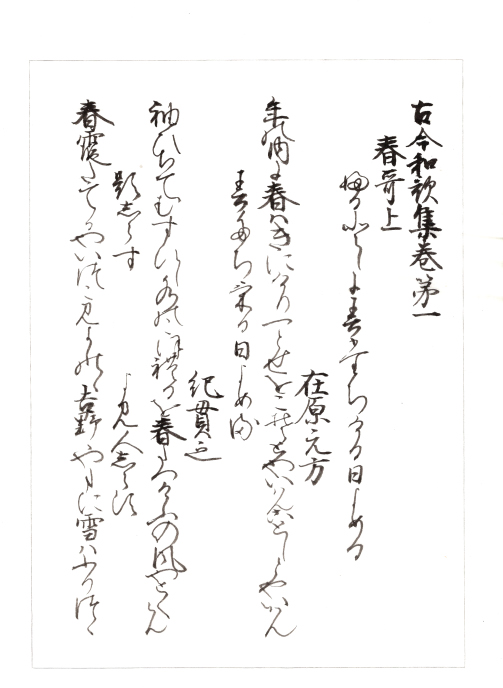 古今和歌集巻第一
春哥上
ふるとしに春たちける日よめる
在原元方
年の内に春はきにけり一とせをこそとやいはんことしとやいはん
春たちける日よめる
紀貫之
袖ひちてむすひし水のこほれるを春立けふの風やとくらん
題しらす
よみ人しらす
春霞たてるやいつこみよしのゝ吉野やまに雪はふりつゝ